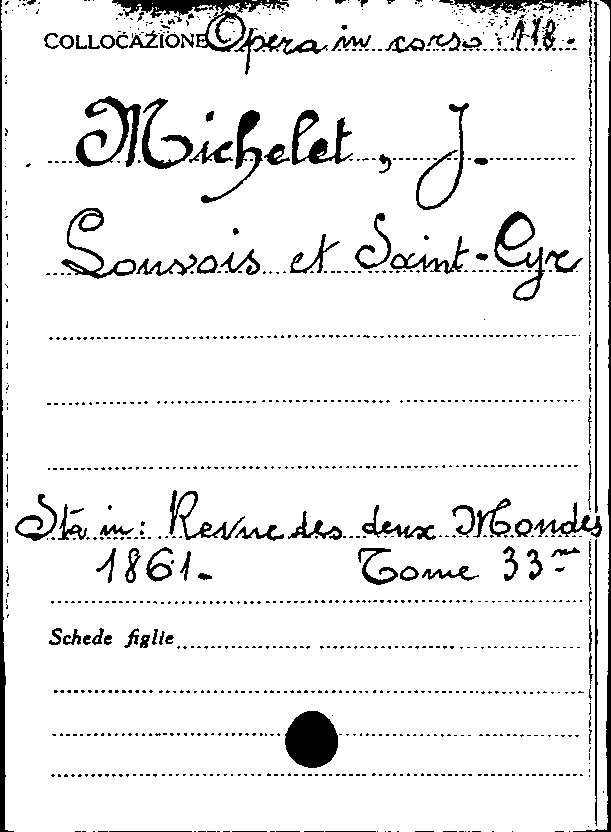 COLLOCAZIONE Opera in corso 118.
Michelet, J.
Louvois et Saint-Cyr
Stà in: Revue des deux Mondes
1861. Tome 33me
Schede figlie